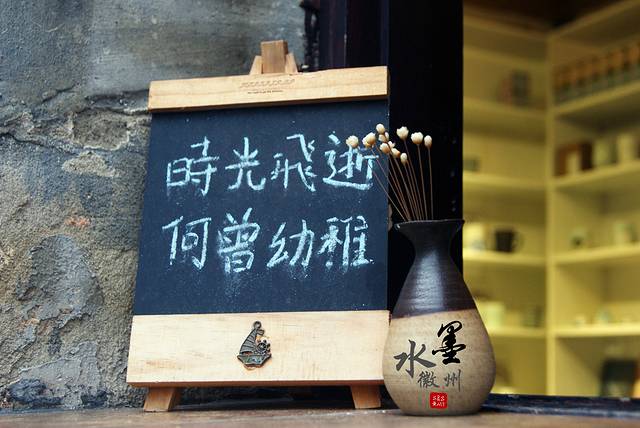 時光飛逝
何曾幼稚
水墨
徽州